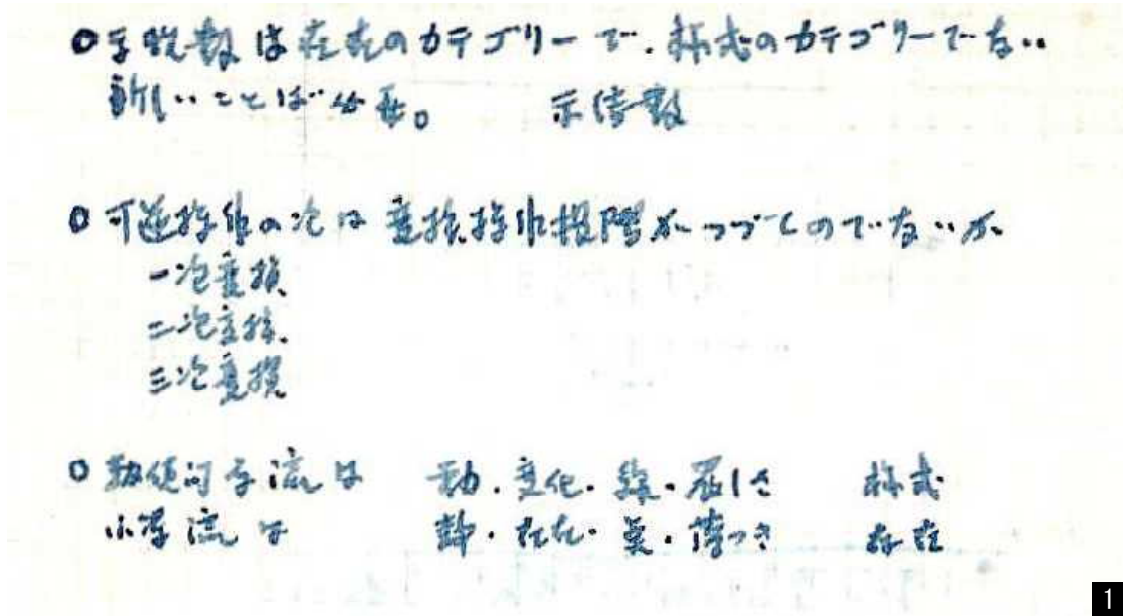 ○手続数は存在のカテゴリーで、様式のカテゴリーでない
新しいことばが必要。 示倍数
○可逆操作の次は変換操作段階がつづくのでないか
一次変換
二次変換
三次変換
○ 流は 動・変化・線・ 様式
小学流は 静・存在・ ・ 存在
1